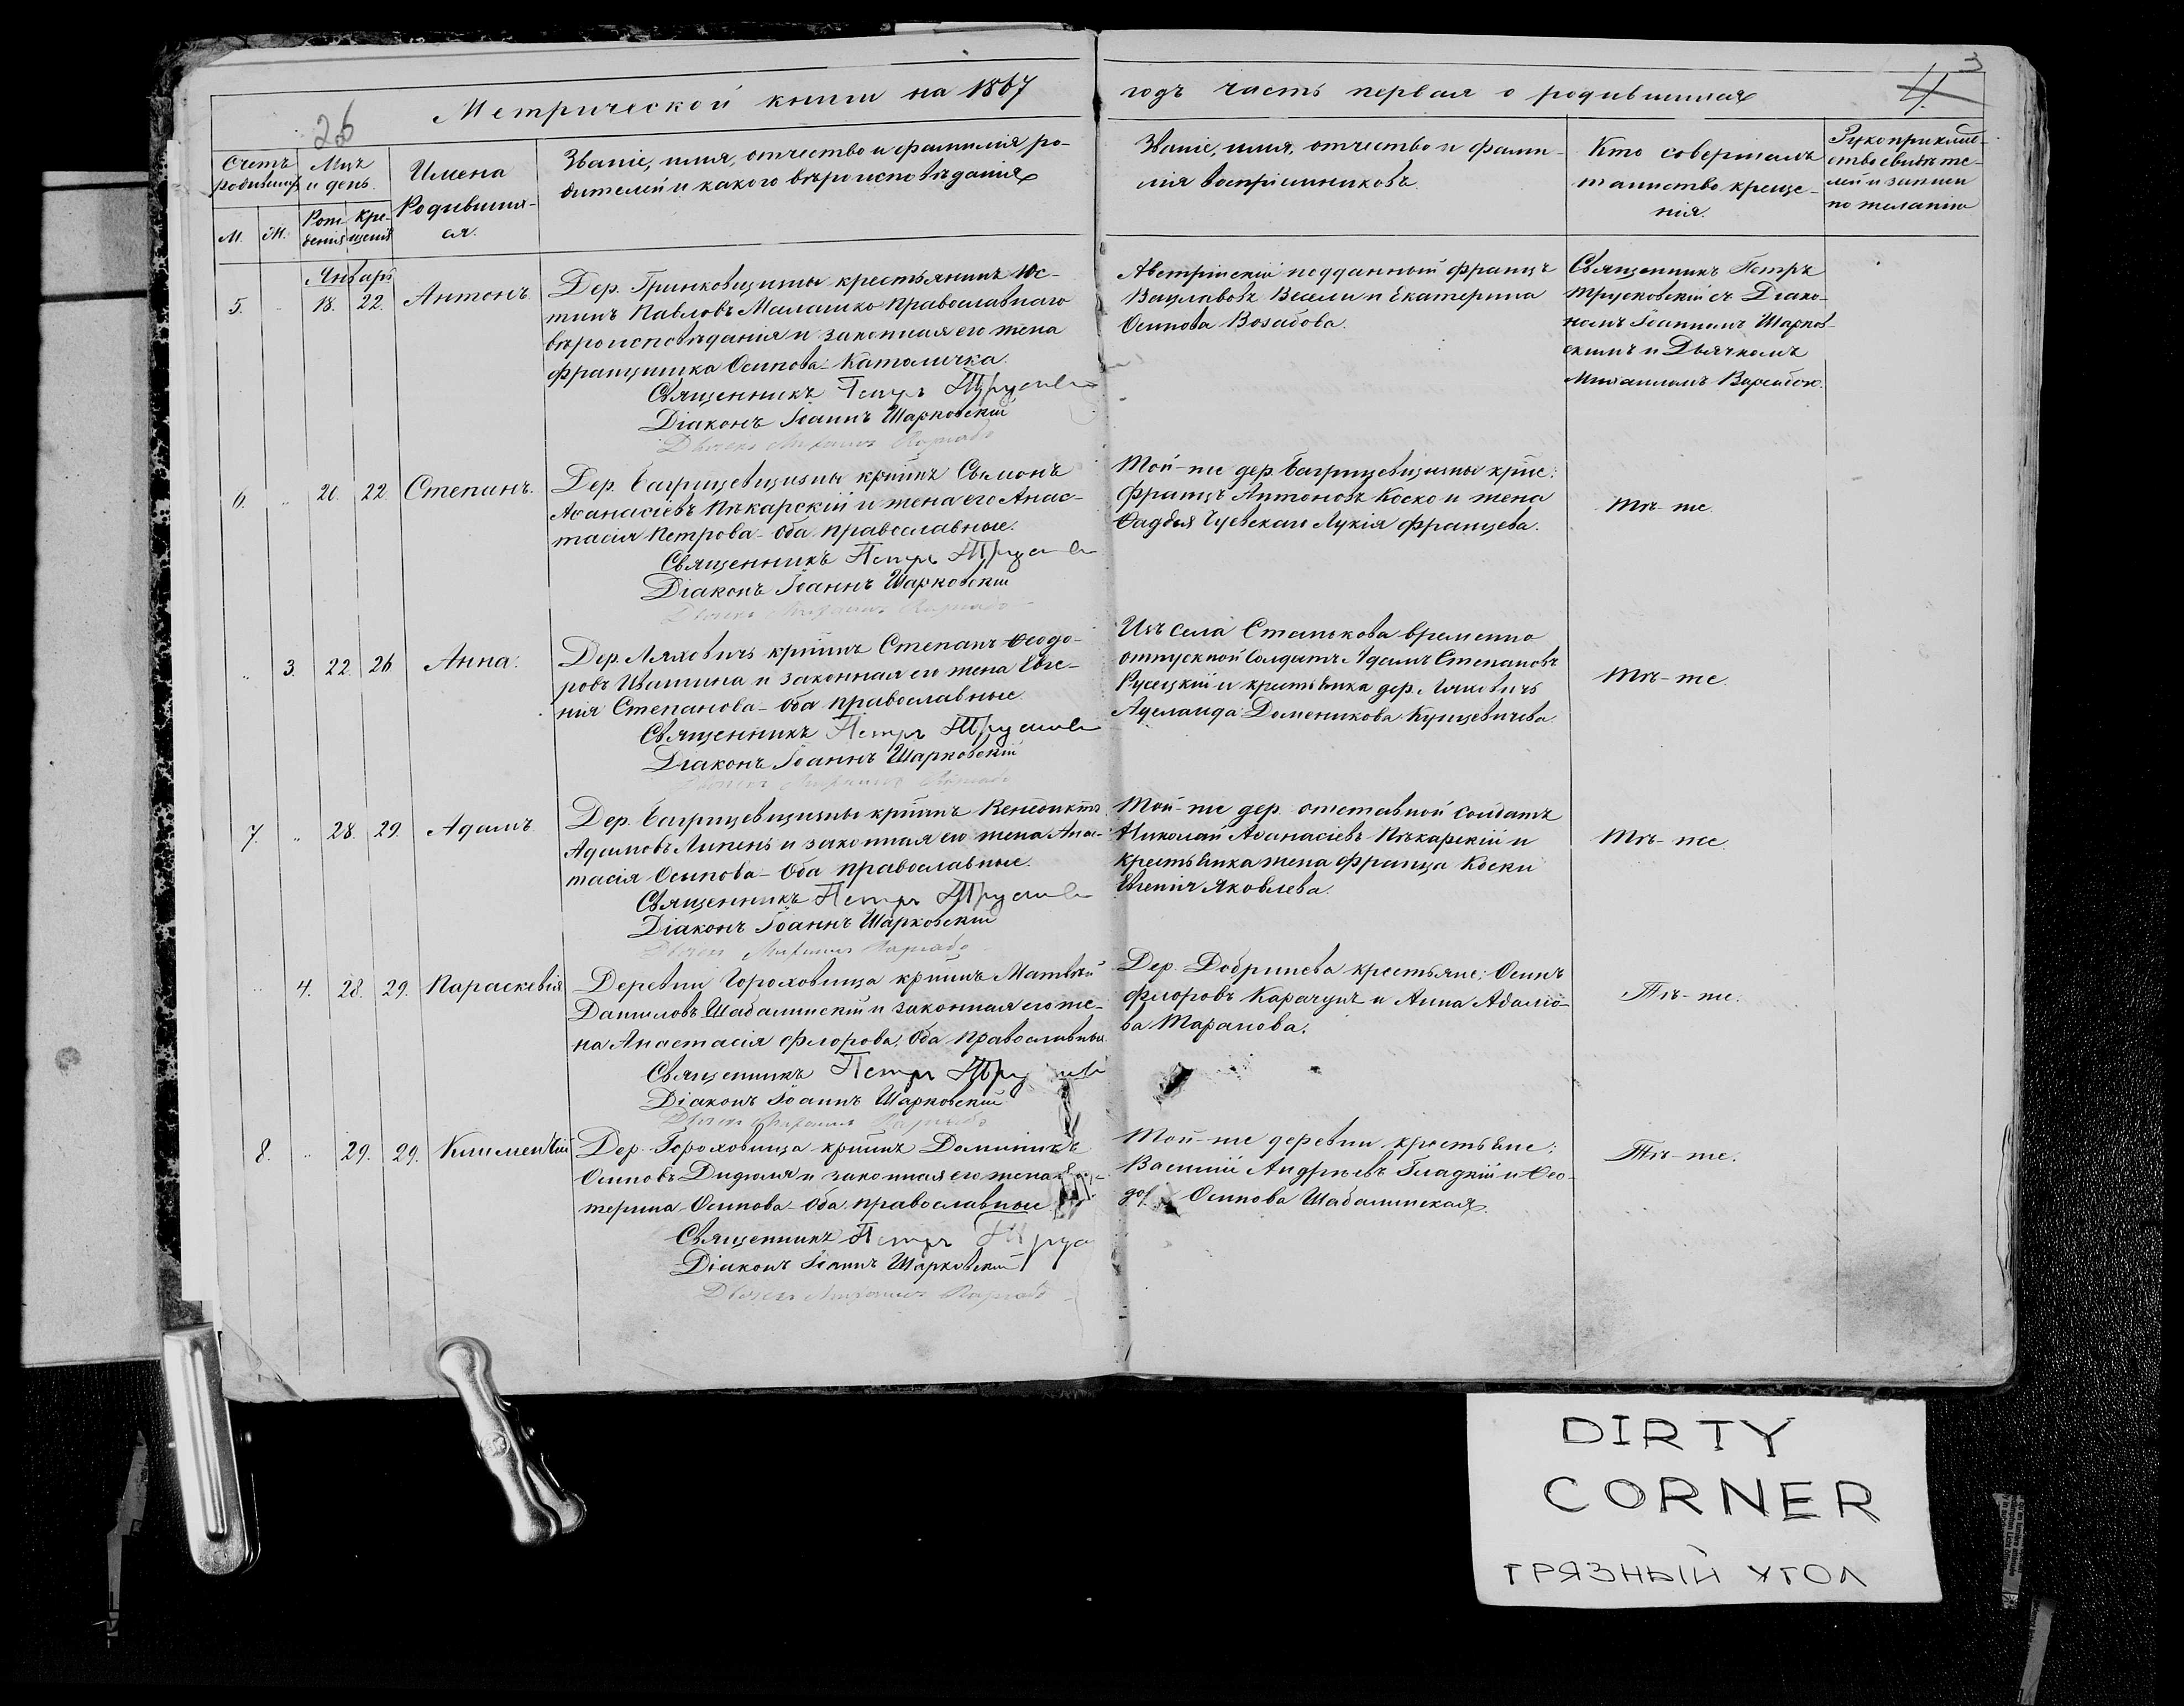 3
Метрической книги на 1867
годъ часть первая о родившихся
4.
26
Счетъ родившихся
Мцъ и день.
Имена Родившихся.
Званіе, имя, отчество и фамилія родителей и какого вѣроисповѣданія
Званіе, имя, отчество и фамилія воспріемниковъ.
Кто совершалъ таинство крещенія.
Рукоприкладство свидѣтелей и записи по желанію
М. Ж. Рожденія Крещенія
Январь
5. " 18. 22. Антонъ.
Дер. Гринковщизны крестьянинъ Юс-
тинъ Павловъ Малашко православнаго
вѣроисповѣданія и законная его жена
Францишка Осипова - Католичка.
Священникъ Петръ
Діаконъ Іоаннъ Шарковскій
Австрійскій подданный Францъ
Вацлавовъ Весели и Екатерина
Осипова
Священникъ Петръ
Трусковскій съ Діако-
номъ Іоанномъ Шарков-
скимъ и Дьячкомъ
Михаиломъ
6. " 20. 22. Степанъ.
Дер. Багрицевщизны крнинъ Сымонъ
Аѳанасіевъ Пѣкарскій и жена его Анас-
тасія Петрова - Оба православные.
Священникъ Петръ
Діаконъ Іоаннъ Шарковскій
Той-же дер. Багрицевщизны крне:
Францъ Антоновъ Коско и жена
Фадѣя Лукія Францева.
Тѣ-же.
" 3. 22. 26 Анна.
Дер. Ляховичъ крнинъ Степанъ Ѳеодо-
ровъ и законная его жена Евге-
нія Степанова - Оба православные
Священникъ Петръ
Діаконъ Іоаннъ Шарковскій
Изъ села Станькова временно
отпускной Солдатъ Адамъ Степановъ
Русецкій и крестьянка дер. Ляховичъ
Аделаида Доменикова Кунцевичева.
Тѣ-же.
7. " 28. 29. Адамъ.
Дер. Багрицевщизны крнинъ Венедиктъ
Адамовъ Липень и законная его жена Анас-
тасія Осипова - Оба православные.
Священникъ Петръ
Діаконъ Іоаннъ Шарковскій
Той-же дер. отставной солдатъ
Николай Аѳанасіевъ Пѣкарскій и
крестьянка жена Франца Коски
Евгенія Яковлева.
Тѣ-же
" 4. 28. 29. Параскевія
Деревни Гороховища крнинъ Матвѣй
Даниловъ Шабалинскій и законная его же-
на Анастасія Флорова. Оба православные
Священникъ Петръ
Діаконъ Іоаннъ Шарковскій
Дер. Добринева крестьяне: Осипъ
Флоровъ Карачунъ и Анна Адамо-
ва Таранова.
Тѣ-же.
8. " 29. 29. Климентій
Дер. Гороховища крнинъ Доминикъ
Осиповъ Дидюля и законная его жена Ека-
терина Осипова - Оба православные
Священникъ Петръ
Діаконъ Іоаннъ Шарковскій
Той-же деревни крестьяне:
Василій Андреевъ Гладкій и Ѳео-
дор Осипова Шабалинская.
Тѣ-же.
DIRTY
CORNER
ГРЯЗНЫЙ УГОЛ